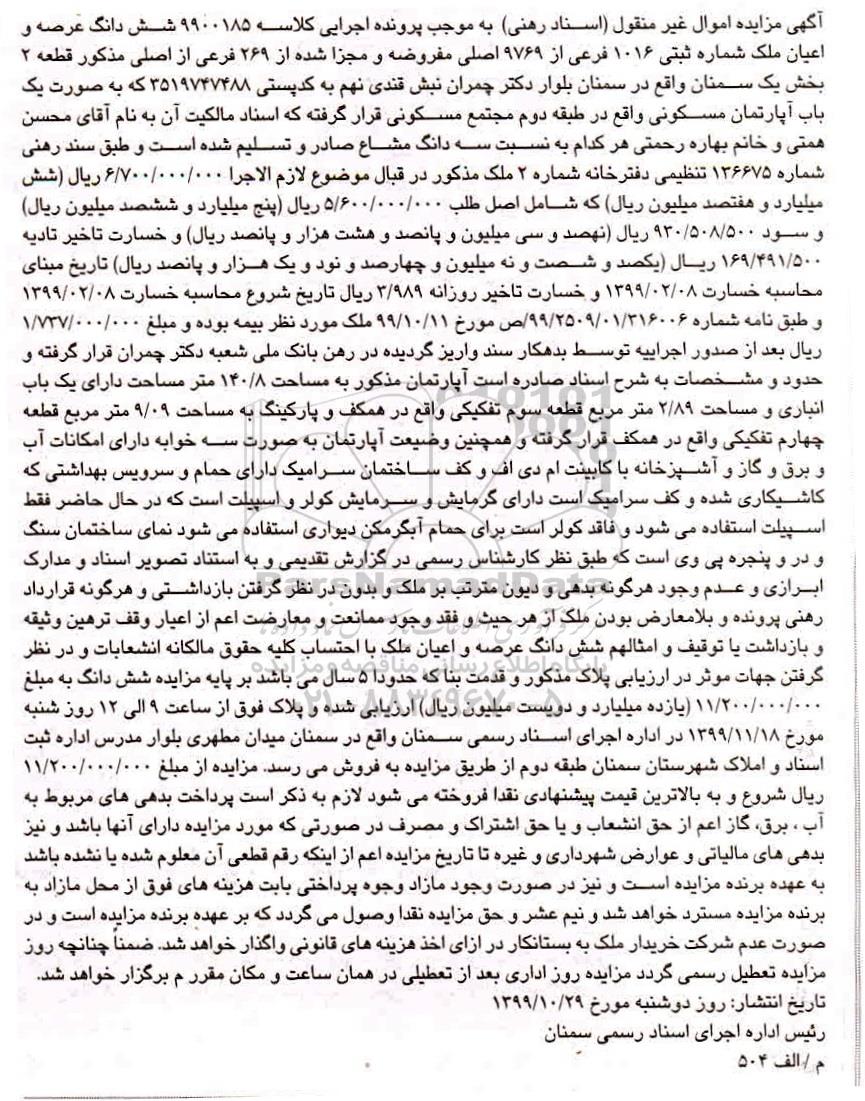 آگهی مزایده اموال غیر منقول (اسناد رهنی) به موجب پرونده اجرایی کلاسه ۹۹۰۰۱۸۵ شش دانگ عرصه و
اعیان ملک شماره ثبتی ۱۰۱۶ فرعی از ۹۷۶۹ اصلی مفروضه و مجزا شده از ۲۶۹ فرعی از اصلی مذکور قطعه ۲
بخش یک سمنان واقع در سمنان بلوار دکتر چمران نبش قندی نهم به کدپستی ۳۵۱۹۷۴۷۴۸۸ که به صورت یک
باب آپارتمان مسکونی واقع در طبقه دوم مجتمع مسکونی قرار گرفته که اسناد مالکیت آن به نام آقای محسن
همتی و خانم بهاره رحمتی هر کدام به نسبت سه دانگ مشاع صادر و تسلیم شده است و طبق سند رهنی
شماره ۱۳۶۶۷۵ تنظیمی دفترخانه شماره ۲ ملک مذکور در قبال موضوع لازم الاجرا ۶/۷۰۰/۰۰۰/۰۰۰ ریال (شش
میلیارد و هفتصد میلیون ریال) که شامل اصل طلب ۵/۶۰۰/۰۰۰/۰۰۰ ریال (پنج میلیارد و ششصد میلیون ریال)
و سود ۹۳۰/۵۰۸/۵۰۰ ریال (نهصد و سی میلیون و پانصد و هشت هزار و پانصد ریال) و خسارت تاخیر تادیه
۱۶۹/۴۹۱/۵۰۰ ریال (یکصد و شصت و نه میلیون و چهارصد و نود و یک هزار و پانصد ریال) تاریخ مبنای
محاسبه خسارت ۱۳۹۹/۰۲/۰۸ و خسارت تاخیر روزانه ۳/۹۸۹ ریال تاریخ شروع محاسبه خسارت ۱۳۹۹/۰۲/۰۸
و طبق نامه شماره ۹۹/۲۵۰۹/۰۱/۳۱۶۰۰۶/ص مورخ ۹۹/۱۰/۱۱ ملک مورد نظر بیمه بوده و مبلغ ۱/۷۳۷/۰۰۰/۰۰۰
ریال بعد از صدور اجراییه توسط بدهکار سند واریز گردیده در رهن بانک ملی شعبه دکتر چمران قرار گرفته و
حدود و مشخصات به شرح اسناد صادره است آپارتمان مذکور به مساحت ۱۴۰/۸ متر مساحت دارای یک باب
انباری و مساحت ۲/۸۹ متر مربع قطعه سوم تفکیکی واقع در همکف و پارکینگ به مساحت ۹/۰۹ متر مربع قطعه
چهارم تفکیکی واقع در همکف قرار گرفته و همچنین وضیعت آپارتمان به صورت سه خوابه دارای امکانات آب
و برق و گاز و آشپزخانه با کابینت ام دی اف و کف ساختمان سرامیک دارای حمام و سرویس بهداشتی که
کاشیکاری شده و کف سرامیک است دارای گرمایش و سرمایش کولر و اسپیلت است که در حال حاضر فقط
اسپیلت استفاده می شود و فاقد کولر است برای حمام آبگرمکن دیواری استفاده می شود نمای ساختمان سنگ
و در و پنجره پی وی است که طبق نظر کارشناس رسمی در گزارش تقدیمی و به استناد تصویر اسناد و مدارک
ابرازی و عدم وجود هرگونه بدهی و دیون مترتب بر ملک و بدون در نظر گرفتن بازداشتی و هرگونه قرارداد
رهنی پرونده و بلامعارض بودن ملک از هر حیث و فقد وجود ممانعت و معارضت اعم از اعیار وقف ترهین وثیقه
و بازداشت یا توقیف و امثالهم شش دانگ عرصه و اعیان ملک با احتساب کلیه حقوق مالکانه انشعابات و در نظر
گرفتن جهات موثر در ارزیابی پلاک مذکور و قدمت بنا که حدودا ۵ سال می باشد بر پایه مزایده شش دانگ به مبلغ
۱۱/۲۰۰/۰۰۰/۰۰۰ (یازده میلیارد و دویست میلیون ریال) ارزیابی شده و پلاک فوق از ساعت ۹ الی ۱۲ روز شنبه
مورخ ۱۳۹۹/۱۱/۱۸ در اداره اجرای اسناد رسمی سمنان واقع در سمنان میدان مطهری بلوار مدرس اداره ثبت
اسناد و املاک شهرستان سمنان طبقه دوم از طریق مزایده به فروش می رسد. مزایده از مبلغ ۱۱/۲۰۰/۰۰۰/۰۰۰
ریال شروع و به بالاترین قیمت پیشنهادی نقدا فروخته می شود لازم به ذکر است پرداخت بدهی های مربوط به
آب ، برق، گاز اعم از حق انشعاب و یا حق اشتراک و مصرف در صورتی که مورد مزایده دارای آنها باشد و نیز
بدهی های مالیاتی و عوارض شهرداری و غیره تا تاریخ مزایده اعم از اینکه رقم قطعی آن معلوم شده یا نشده باشد
به عهده برنده مزایده است و نیز در صورت وجود مازاد وجوه پرداختی بابت هزینه های فوق از محل مازاد به
برنده مزایده مسترد خواهد شد و نیم عشر و حق مزایده نقدا وصول می گردد که بر عهده برنده مزایده است و در
صورت عدم شرکت خریدار ملک به بستانکار در ازای اخذ هزینه های قانونی واگذار خواهد شد. ضمناً چنانچه روز
مزایده تعطیل رسمی گردد مزایده روز اداری بعد از تعطیلی در همان ساعت و مکان مقرر م برگزار خواهد شد.
تاریخ انتشار: روز دوشنبه مورخ ۱۳۹۹/۱۰/۲۹
رئیس اداره اجرای اسناد رسمی سمنان
م / الف ۵۰۴
ParsNamadData
پایگاه اطلاع رسانی مناقصه و مزایده
۰۲۱-۸۸۳۴۹۶۷۰-۵